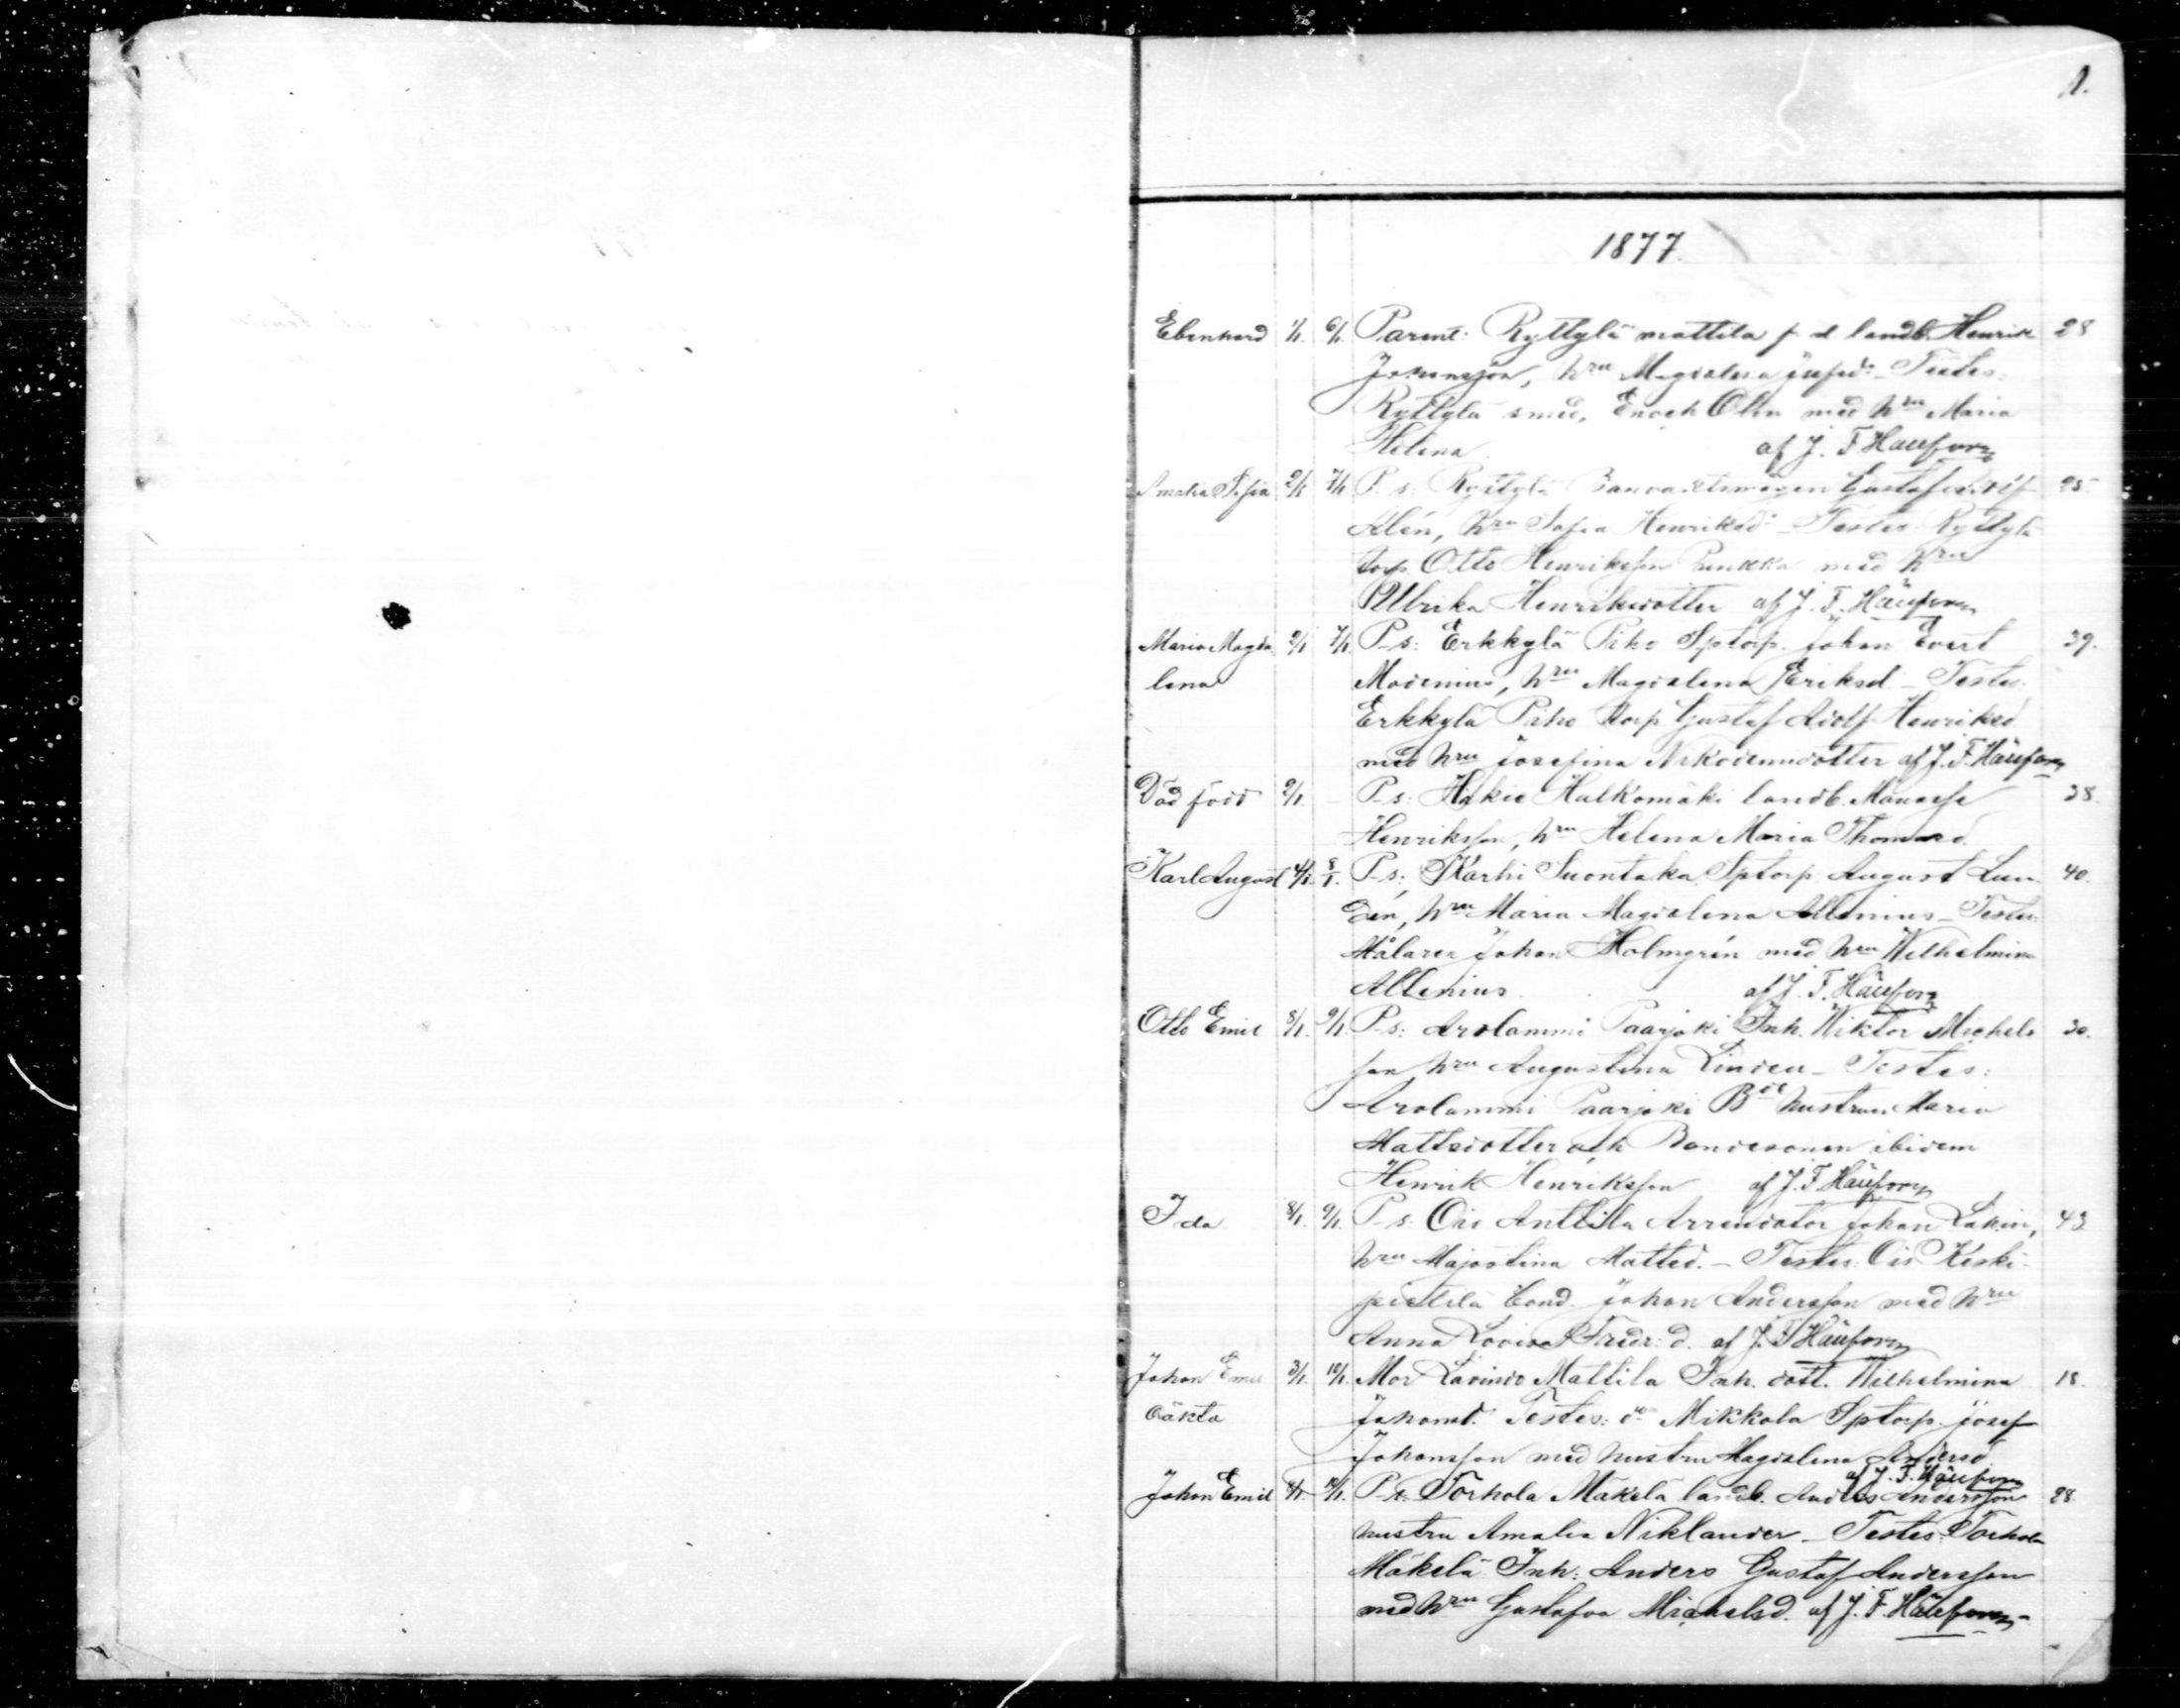 1.
1877.
Ebenhard 1/1. 6/1. Parent: Ryttylä mattila f. d. landb. Henrik 28
Johansson, hru Magdalena Josefsd. – Testes:
Ryttylä smed, Enoch Olin med hru Maria
Helena. af J. F. Häusforz
Amalia Sofia 2/1 7/1 P–s: Ryttylä Banvaktmägen Gustaf Adolf 25
Alén, hru Sofia Henriksd. – Testes Ryttylä
torp. Otto Henriksson Punkka med hru
Ulrika Henriksdotter af J. F. Häusforz
Maria Magda 2/1 7/1. P–s: Erkkylä Piho Sptorp. Johan Evert 39.
lena Modenius, hru Magdalena Eriksd – Testes:
Erkkylä Piho torp Gustaf Adolf Henriksd
med hru Josefina Nikodemidotter af J. F. Häusforz
Död född 2/1. P–s: Hikie Hulkomäki landb. Manasse 38.
Henriksson, hru Helena Maria Thomasd.
Karl August 4/1. 8/1. P–s: Karhi Suontaka Sptorp August Lun 40.
dén, hru Maria Magdalena Allenius – Testes:
Målaren Johan Holmgrén med hru Wilhelmina
Allenius. af J. F. Häusforz
Otto Emil 8/1. 9/1. P–s: Arolammi Paarjoki Inh. Wiktor Michels 30.
son, hru Augustina Linden – Testes:
Arolammi Paarjoki Bde hustrun Maria
Mattsdotter och Bondesonen ibidem
Henrik Henriksson af J. F. Häusforz
Ida 8/1. 9/1. P–s: Ois Anttila Arrendator Johan Lakin, 43
hru Majastina Mattsd. – Testes: Ois Keski-
pietilä bond. Johan Andersson med hru
Anna Lovisa Fredr:d. af J. F. Häusforz
Johan Emil 3/1. 10/1. Mor Lavinto Mattila Inh. dott. Wilhelmina 18.
oäkta Johansd. Testes: do Mikkola Sptorp. Josef
Johansson med hustru Magdalena Andersd
af J. F. Häusforz
Johan Emil 8/1. 10/1. P–s: Torhola Mäkelä landb. Anders Andersson 28.
hustru Amalia Niklander – Testes: Torhola
Mäkelä Inh: Anders Gustaf Andersson
med hru Gustafva Michelsd. af J. F. Häusforz